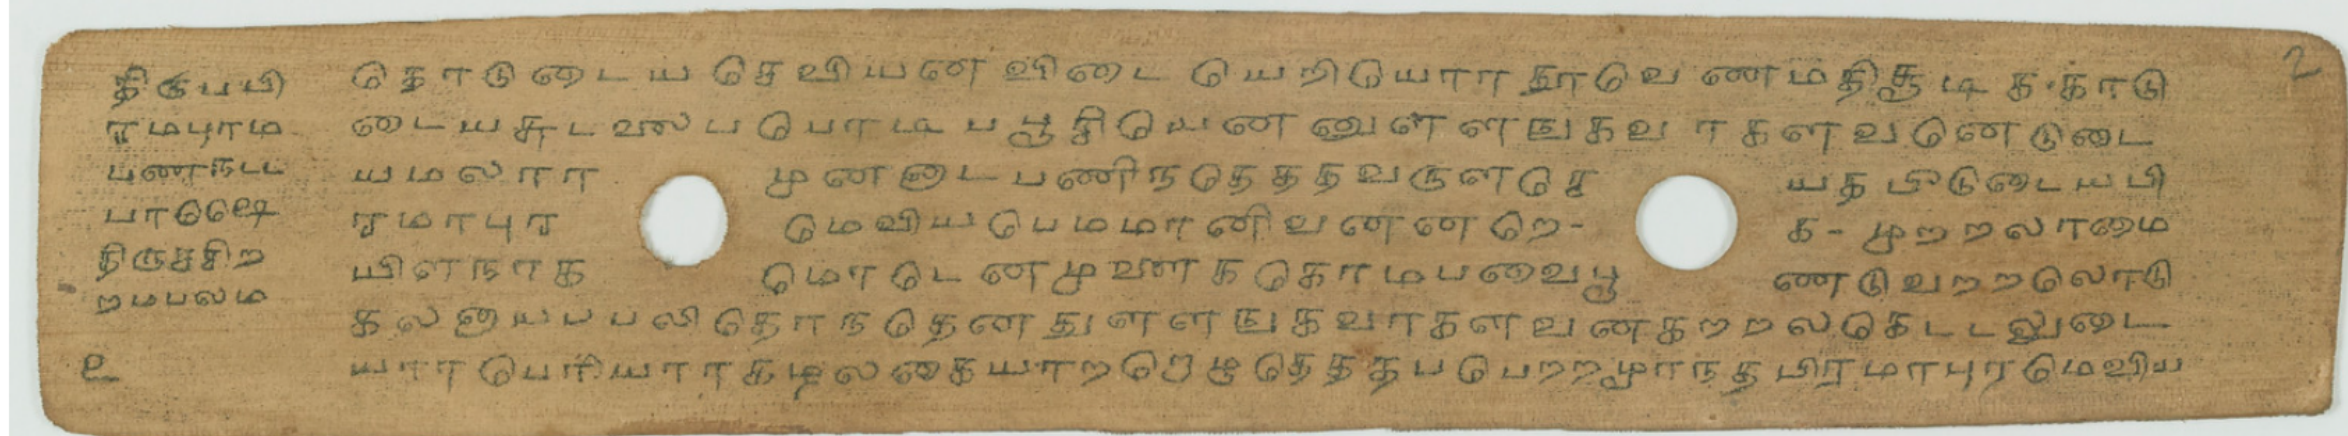 2
திருபபி
ரமபுரம
பணநடட
திருசசிற
றமபலம
உ
தொடுடைய செவியன விடை யெறியொரர தூவெணமதிசூடிக காடு
டையசுடலைப பொடிப பூசியென னுளளஙகவர களவனெடுடை
யமலரா முனனாடபணிநதெததவருளசெ யதபிடுடையபி
ரமாபுர மெவியபெமமானிவனனறெ- க- முறறலாமை
யிளநாக மொடெனமுளைககொமபவைபூ ணடுவறறலொடு
கலனாயபபலிதொநதெனதுளளஙகவரகளவனகறறலகெடடலுடை
யாரபெரியாரகழலகையாறறெழுதெததபபெறறமூரநதபிரமாபுரமெவிய